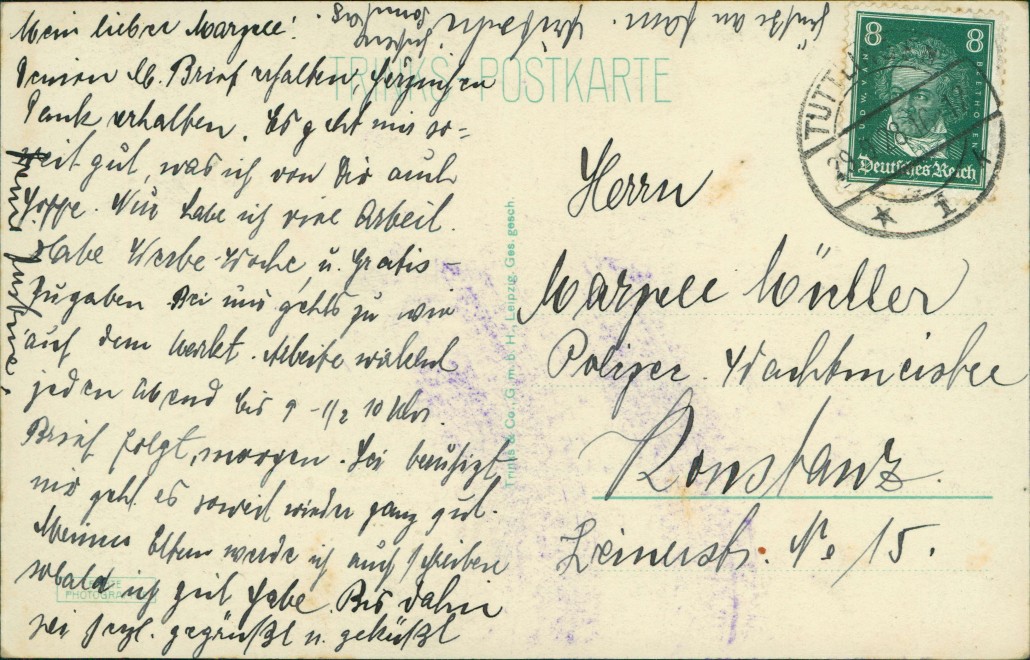 Mein lieber Marzell!
Deinen lb. Brief erhalten, herzlichen
Dank erhalten. Es geht mir so=
weit gut, was ich von Dir auch
hoffe. Nur habe ich viel Arbeit.
Habe Werbe-Woche u. Gratis-
Zugaben. Bei uns gehts zu wie
auf dem Markt. Arbeite während
jeden Abend bis 9 - 1/2 10 Uhr.
Brief folgt, morgen. Sei beruhigt
mir geht es soweit wieder ganz gut.
Meinen Eltern werde ich auch schreiben
sobald ich Zeit habe. Bis dahin
sei herzl. gegrüßt u. geküßt
Deine
Grüße an Fam.
TRINKS POSTKARTE
Trinks & Co. G.m.b.H., Leipzig. Ges. gesch.
ECHTE
PHOTOGRAPHIE
8 8
LUDW. VAN BEETHOVEN
Deutsches Reich
TUTTLINGEN
Herrn
Marzell Müller
Polizei Wachtmeister
Konstanz.
Leinerstr. No 15.